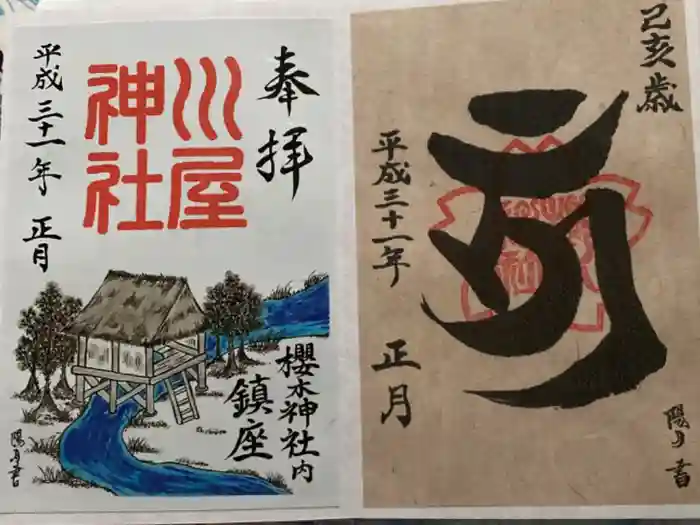 奉拝
川屋
神社
平成三十一年 正月
櫻木神社内
鎮座
陽月書
己亥歳
平成三十一年 正月
陽月書